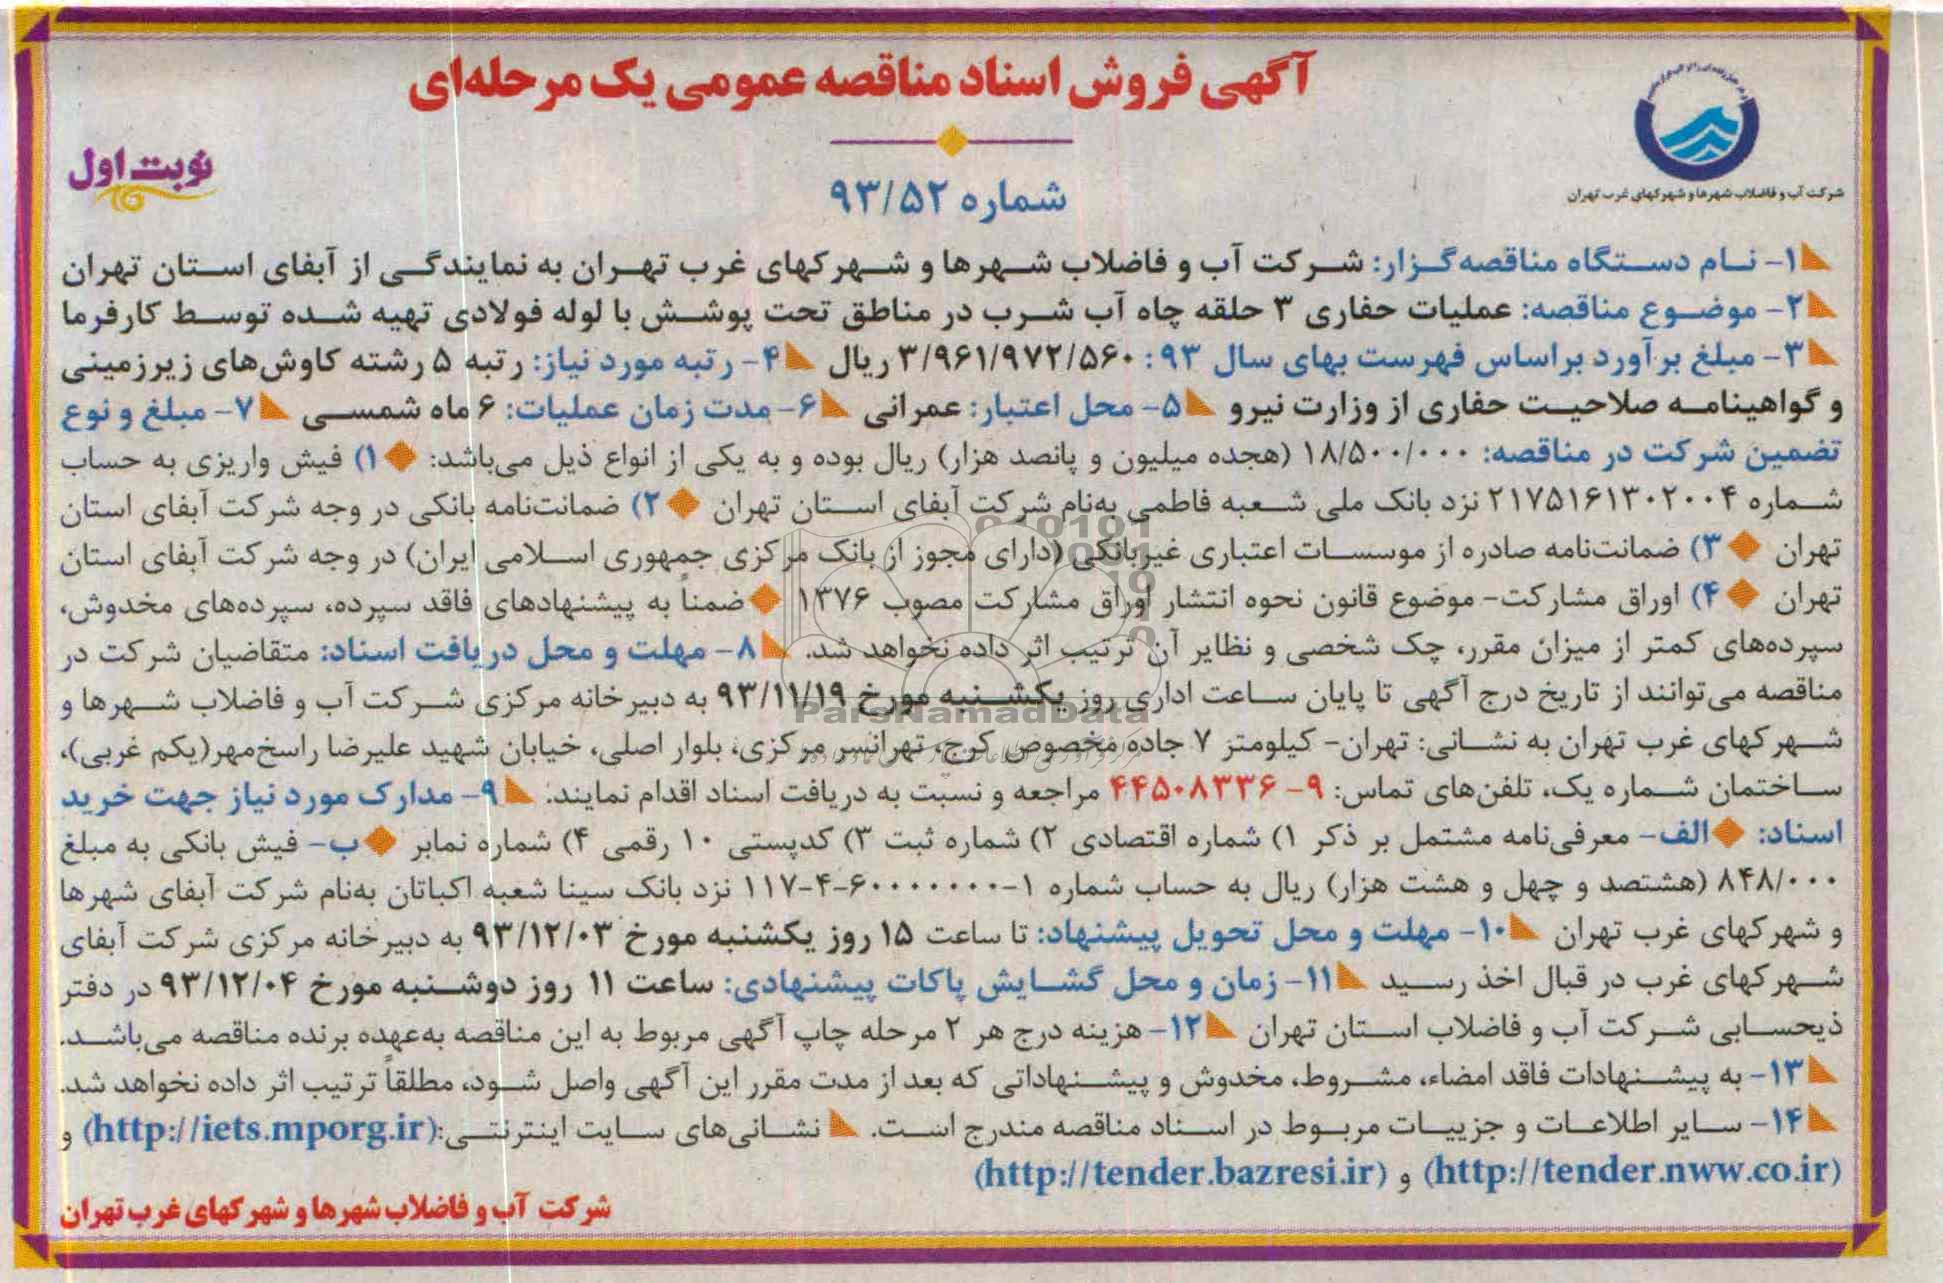 آگهی فروش اسناد مناقصه عمومی یک مرحله‌ای
شماره ۹۳/۵۲
نوبت اول
شرکت آب و فاضلاب شهرها و شهرکهای غرب تهران
۱- نام دستگاه مناقصه‌گزار: شرکت آب و فاضلاب شهرها و شهرکهای غرب تهران به نمایندگی از آبفای استان تهران
۲- موضوع مناقصه: عملیات حفاری ۳ حلقه چاه آب شرب در مناطق تحت پوشش با لوله فولادی تهیه شده توسط کارفرما
۳- مبلغ برآورد براساس فهرست بهای سال ۹۳: ۳/۹۶۱/۹۷۲/۵۶۰ ریال ۴- رتبه مورد نیاز: رتبه ۵ رشته کاوش‌های زیرزمینی
و گواهینامه صلاحیت حفاری از وزارت نیرو ۵- محل اعتبار: عمرانی ۶- مدت زمان عملیات: ۶ ماه شمسی ۷- مبلغ و نوع
تضمین شرکت در مناقصه: ۱۸/۵۰۰/۰۰۰ (هجده میلیون و پانصد هزار) ریال بوده و به یکی از انواع ذیل می‌باشد: ۱) فیش واریزی به حساب
شماره ۲۱۷۵۱۶۱۳۰۲۰۰۴ نزد بانک ملی شعبه فاطمی به‌نام شرکت آبفای استان تهران ۲) ضمانت‌نامه بانکی در وجه شرکت آبفای استان
تهران ۳) ضمانت‌نامه صادره از موسسات اعتباری غیربانکی (دارای مجوز از بانک مرکزی جمهوری اسلامی ایران) در وجه شرکت آبفای استان
تهران ۴) اوراق مشارکت- موضوع قانون نحوه انتشار اوراق مشارکت مصوب ۱۳۷۶ ضمناً به پیشنهادهای فاقد سپرده، سپرده‌های مخدوش،
سپرده‌های کمتر از میزان مقرر، چک شخصی و نظایر آن ترتیب اثر داده نخواهد شد. ۸- مهلت و محل دریافت اسناد: متقاضیان شرکت در
مناقصه می‌توانند از تاریخ درج آگهی تا پایان ساعت اداری روز یکشنبه مورخ ۹۳/۱۱/۱۹ به دبیرخانه مرکزی شرکت آب و فاضلاب شهرها و
ParsNamadData
شهرکهای غرب تهران به نشانی: تهران- کیلومتر ۷ جاده مخصوص کرج، تهرانسر مرکزی، بلوار اصلی، خیابان شهید علیرضا راسخ‌مهر(یکم غربی)،
ساختمان شماره یک، تلفن‌های تماس: ۹-۴۴۵۰۸۳۳۶ مراجعه و نسبت به دریافت اسناد اقدام نمایند. ۹- مدارک مورد نیاز جهت خرید
اسناد: الف- معرفی‌نامه مشتمل بر ذکر ۱) شماره اقتصادی ۲) شماره ثبت ۳) کدپستی ۱۰ رقمی ۴) شماره نمابر ب- فیش بانکی به مبلغ
۸۴۸/۰۰۰ (هشتصد و چهل و هشت هزار) ریال به حساب شماره ۱-۶۰۰۰۰۰۰۰-۴-۱۱۷ نزد بانک سینا شعبه اکباتان به‌نام شرکت آبفای شهرها
و شهرکهای غرب تهران ۱۰- مهلت و محل تحویل پیشنهاد: تا ساعت ۱۵ روز یکشنبه مورخ ۹۳/۱۲/۰۳ به دبیرخانه مرکزی شرکت آبفای
شهرکهای غرب در قبال اخذ رسید ۱۱- زمان و محل گشایش پاکات پیشنهادی: ساعت ۱۱ روز دوشنبه مورخ ۹۳/۱۲/۰۴ در دفتر
ذیحسابی شرکت آب و فاضلاب استان تهران ۱۲- هزینه درج هر ۲ مرحله چاپ آگهی مربوط به این مناقصه به‌عهده برنده مناقصه می‌باشد.
۱۳- به پیشنهادات فاقد امضاء، مشروط، مخدوش و پیشنهاداتی که بعد از مدت مقرر این آگهی واصل شود، مطلقاً ترتیب اثر داده نخواهد شد.
۱۴- سایر اطلاعات و جزییات مربوط در اسناد مناقصه مندرج است. نشانی‌های سایت اینترنتی:(http://iets.mporg.ir) و
(http://tender.nww.co.ir) و (http://tender.bazresi.ir)
شرکت آب و فاضلاب شهرها و شهرکهای غرب تهران